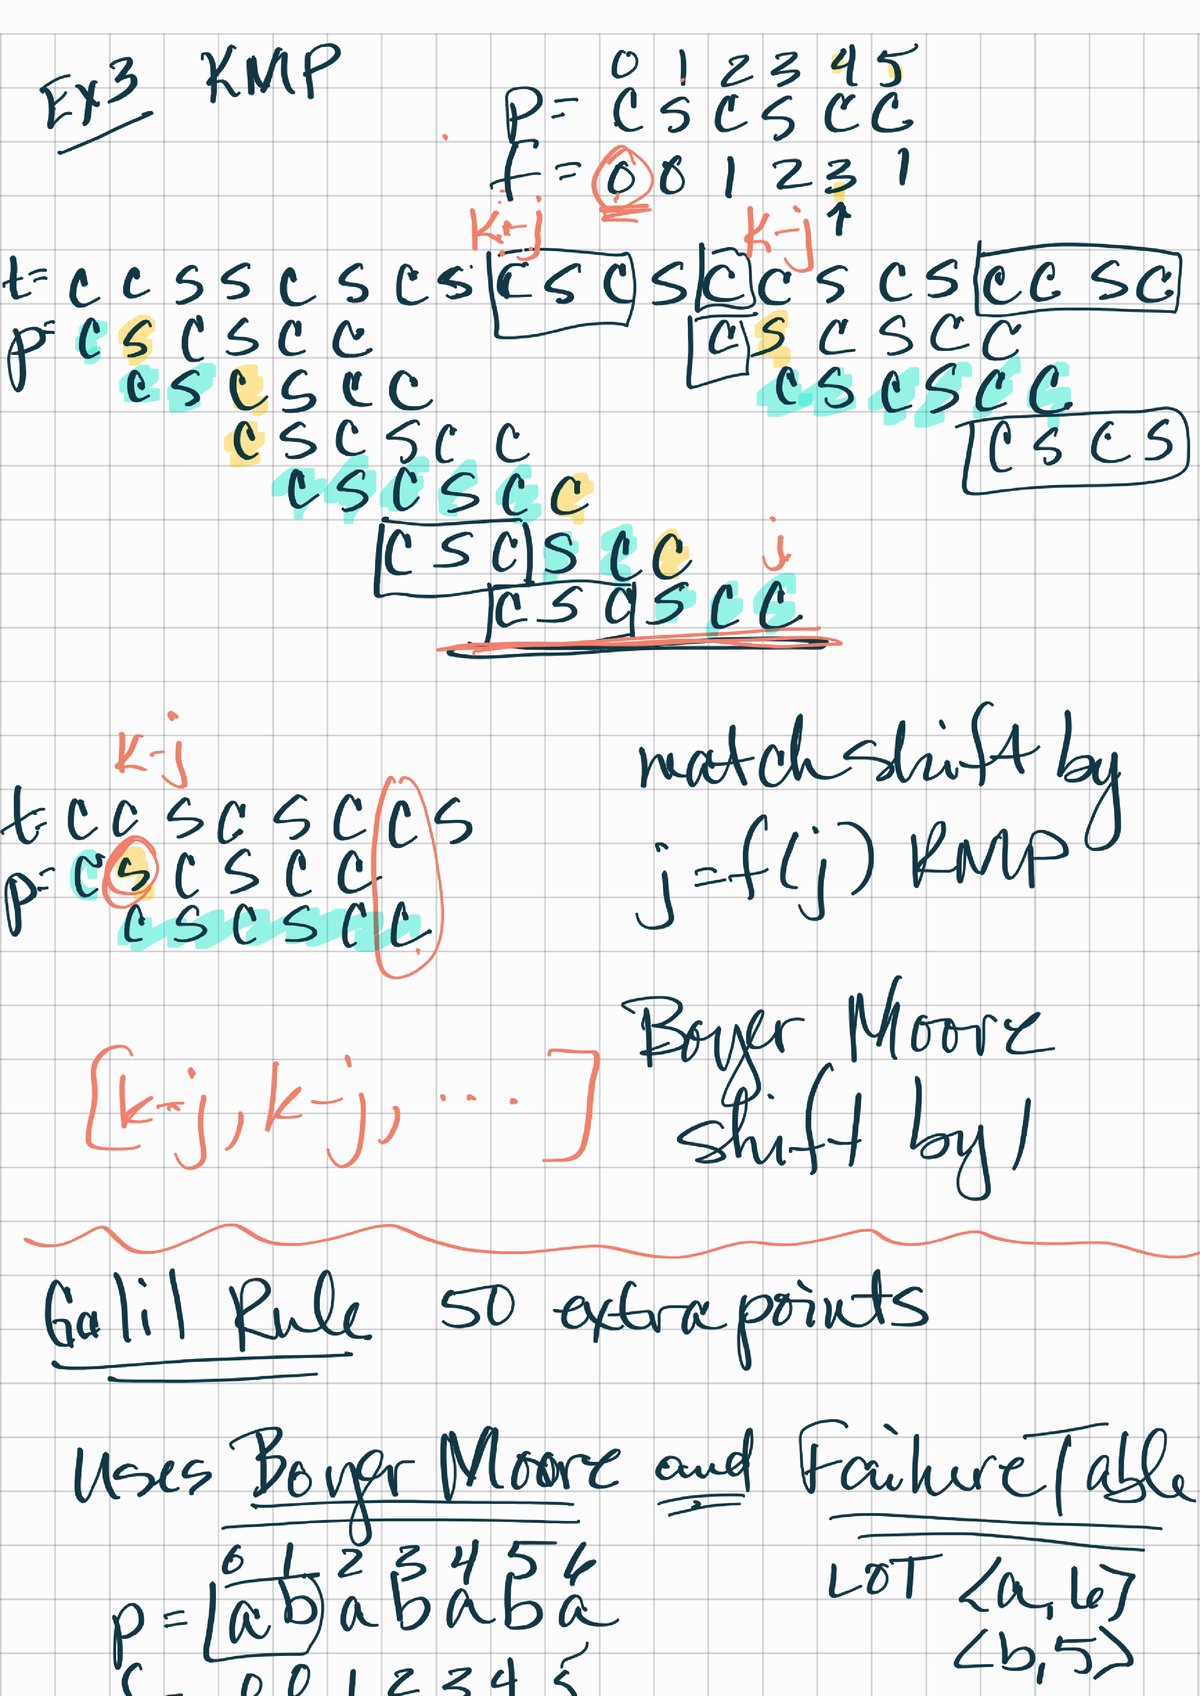 Ex3 KMP
0 1 2 3 4 5
p = c s c s c c
f = 0 0 1 2 3 1
k-j k-j ↑
t = c c s s c s c s c s c s c c s c s c c s c
p = c s c s c c c s c s c c
c s c s c c c s c s c c
c s c s c c c s c s
c s c s c c
c s c s c c j
c s c s c c
k-j
match shift by
t = c c s c s c c s
p = c s c s c c j = f(j) KMP
c s c s c c
Boyer Moore
[k-j, k-j, ....] shift by 1
Galil Rule 50 extra points
Uses Boyer Moore and Failure Table
0 1 2 3 4 5 6 LOT <a, 6>
p = a b a b a b a <b, 5>
f = 0 0 1 2 3 4 5